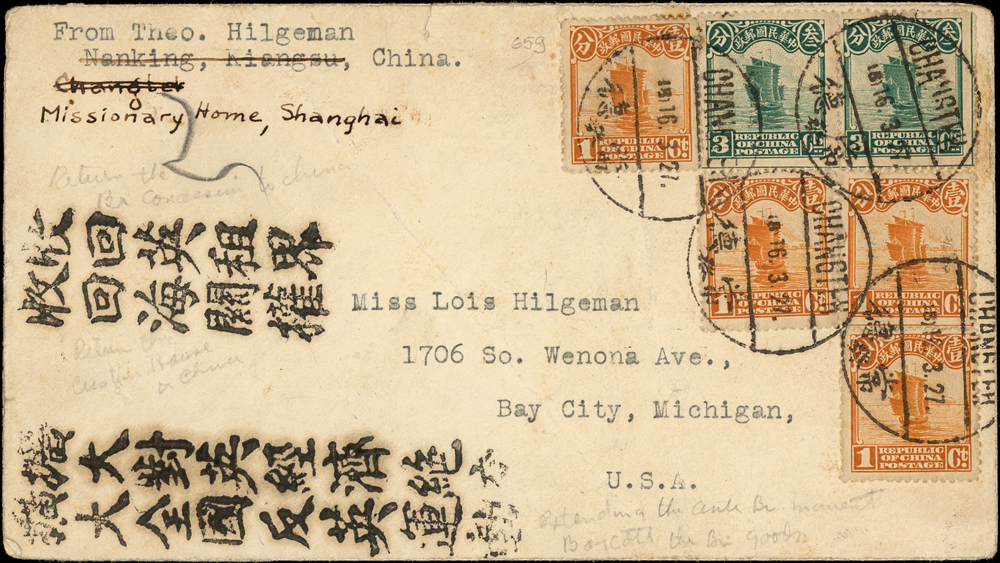 From Theo. Hilgeman
659
Nanking, Kiangsu, China.
Changteh
Missionary Home, Shanghai
Return the
Br Concession to China
收回英租界
收回海關權
Return the
Custom House
to China
Miss Lois Hilgeman
1706 So. Wenona Ave.,
Bay City, Michigan,
U.S.A.
擴大對英經濟絕交
擴大全國反英運動
Extending the anti Br. movement
Boycott the Br. Goods
分 壹
中華民國郵政
REPUBLIC
OF CHINA
POSTAGE
1 Ct
分 叁
中華民國郵政
REPUBLIC
OF CHINA
POSTAGE
3 Cts
分 叁
中華民國郵政
REPUBLIC
OF CHINA
POSTAGE
3 Cts
分 壹
中華民國郵政
REPUBLIC
OF CHINA
POSTAGE
1 Ct
壹
中華民國郵政
REPUBLIC
OF CHINA
POSTAGE
Ct
壹
REPUBLIC
OF CHINA
POSTAGE
1 Ct
16.3.27.
16.3.27.
CHANGTEH
16.3.27.
CHANGTEH
3.27.